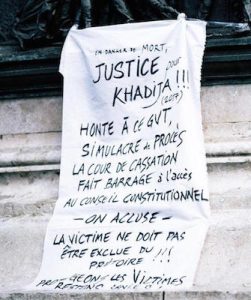 EN DANGER DE MORT,
JUSTICE pour
KHADIJA !!!
(2017)
HONTE À CE GVT,
SIMULACRE de PROCÈS
LA COUR DE CASSATION
FAIT BARRAGE à l'accès
AU CONSEIL CONSTITUTIONNEL
- ON ACCUSE -
LA VICTIME NE DOIT PAS
ÊTRE EXCLUE DU
PRÉTOIRE !!! !!!
PROTÉGEONS LES VICTIMES